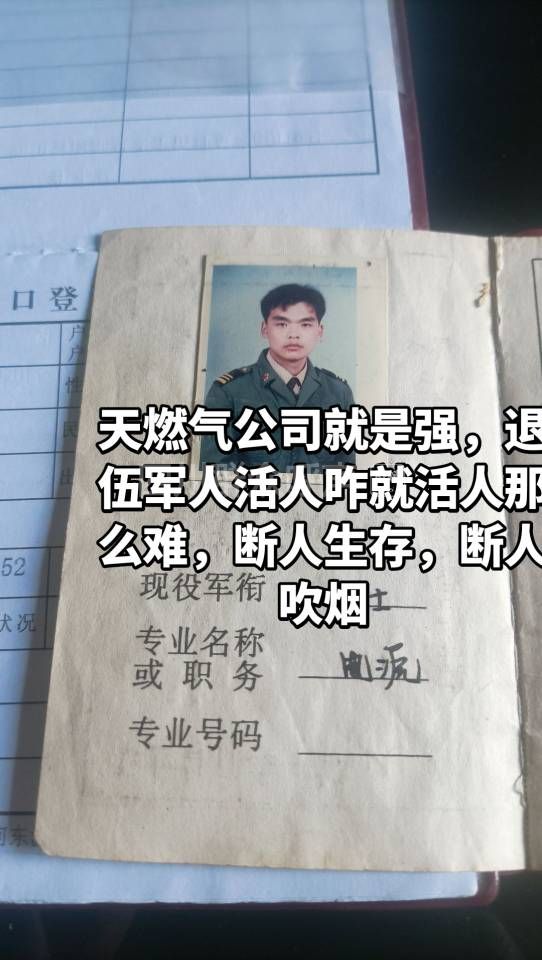 口登
天燃气公司就是强，退
伍军人活人咋就活人那
么难，断人生存，断人
吹烟
52
状况
现役军衔 士
专业名称
或职务 电源
专业号码
河东